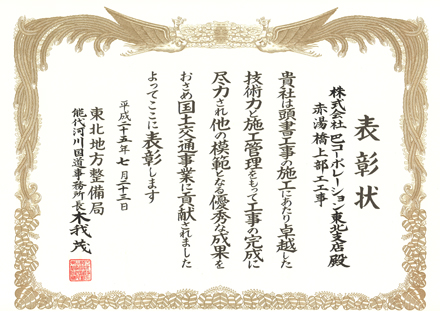 表彰状
株式会社 巴コーポレーション東北支店殿
赤湯橋上部工工事
貴社は頭書工事の施工にあたり卓越した
技術力と施工管理をもって工事の完成に
尽力され他の模範となる優秀な成果を
おさめ国土交通事業に貢献されました
よってここに表彰します
平成二十五年七月二十三日
東北地方整備局
能代河川国道事務所長 木我 茂